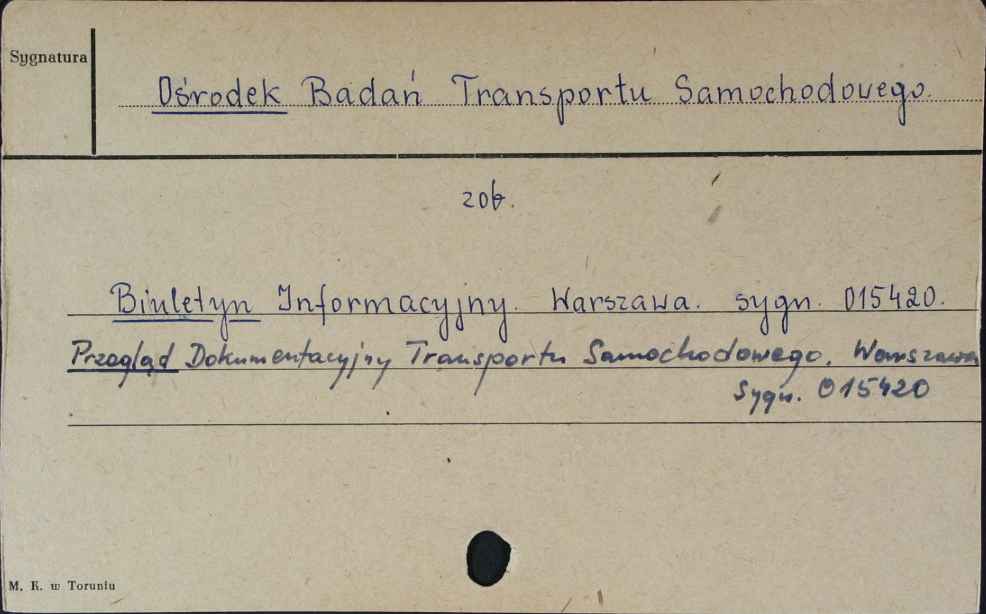 Sygnatura
Ośrodek Badań Transportu Samochodowego.
zob.
Biuletyn Informacyjny. Warszawa. sygn. 015420.
Przegląd Dokumentacyjny Transportu Samochodowego. Warszawa
Sygn. 015420
M. K. w Toruniu